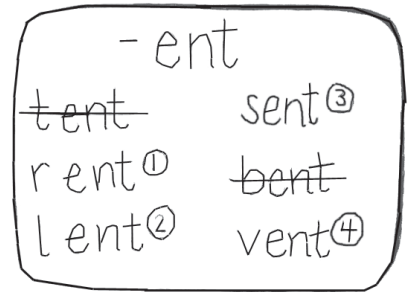 - ent
tent
rent ①
lent ②
sent ③
bent
vent ④